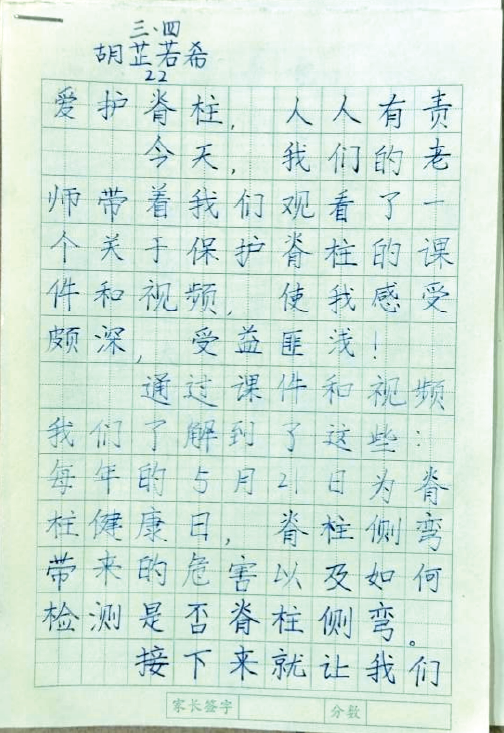 三.四
胡芷若希
22
爱护脊柱，人人有责
今天，我们的老
师带着我们观看了一
个关于保护脊柱的课
件和视频，使我感受
颇深，受益匪浅！
通过课件和视频
我们了解到了这些：
每年的5月21日为脊
柱健康日，脊柱侧弯
带来的危害以及如何
检测是否脊柱侧弯。
接下来就让我们
家长签字 分数